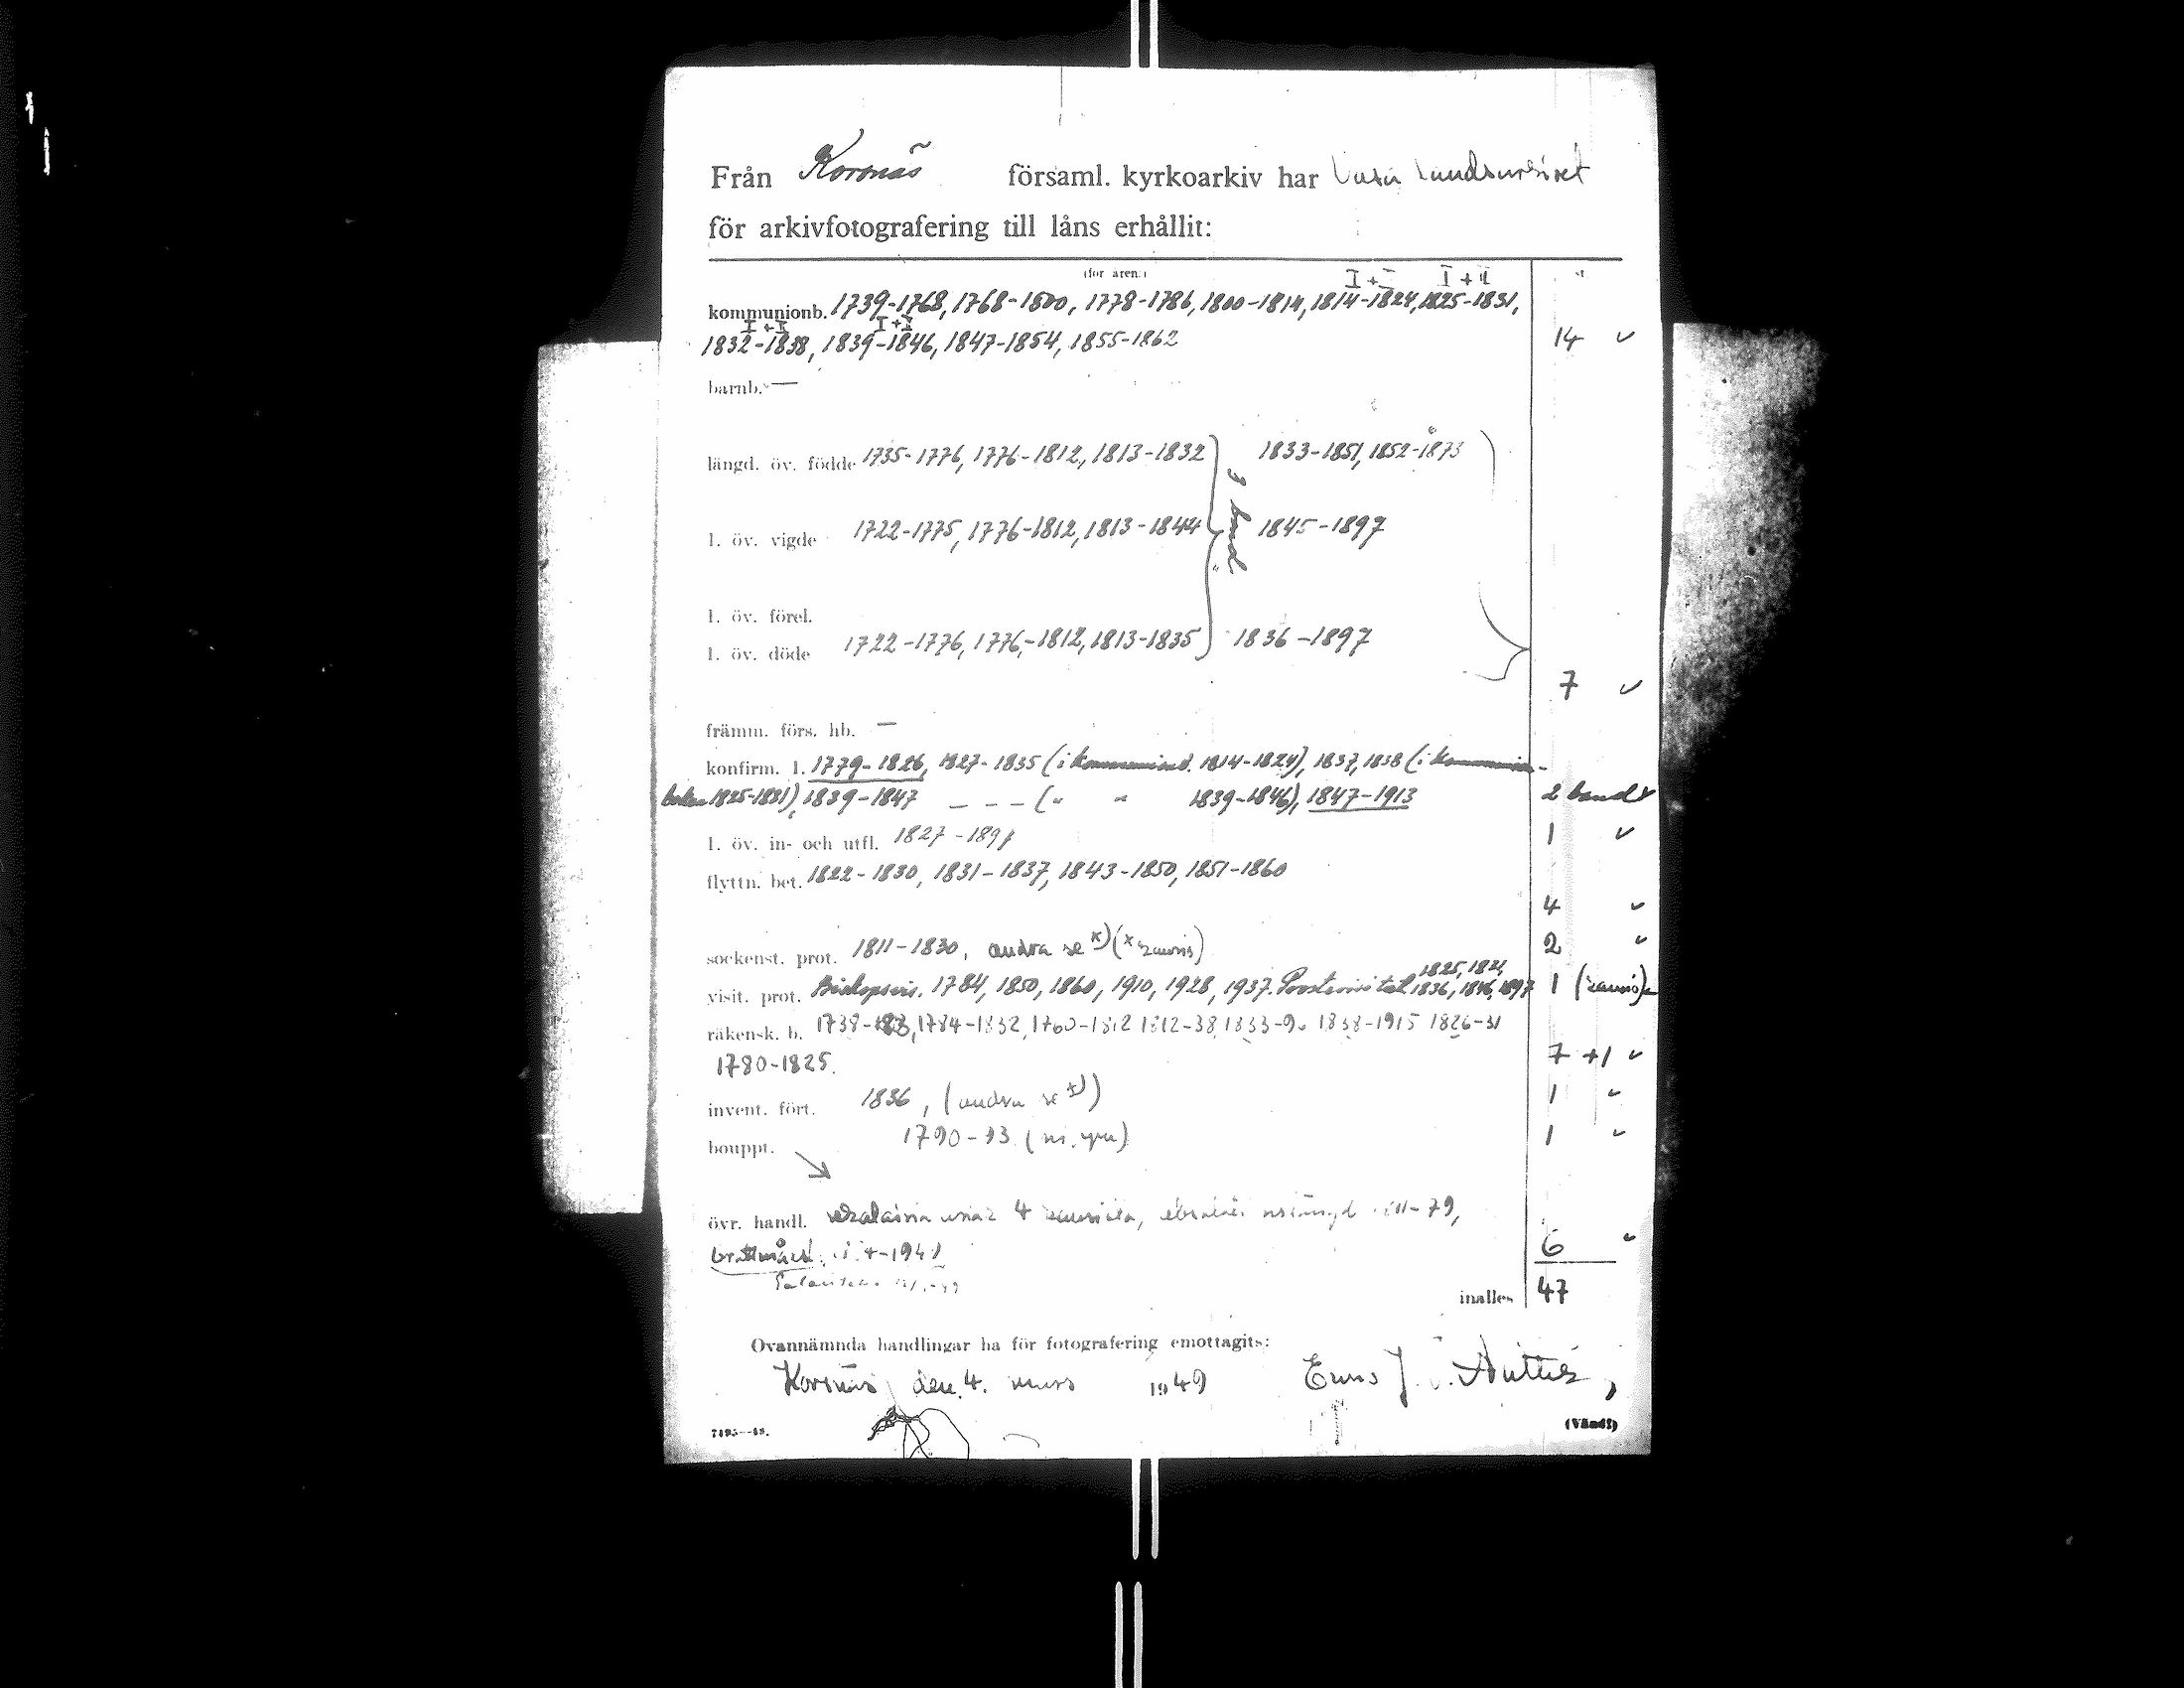 Från Korsnäs församl. kyrkoarkiv har Vasa landsarkivet
för arkivfotografering till låns erhållit:
(för åren:)
I + I I + II
kommunionb. 1739-1768, 1768-1800, 1778-1786, 1800-1814, 1814-1824, 1825-1831,
I + II I + II
1832-1838, 1839-1846, 1847-1854, 1855-1862 14 ✓
barnb. —
längd. öv. födde 1735-1776, 1776-1812, 1813-1832 1833-1851, 1852-1873
3 band
l. öv. vigde 1722-1775, 1776-1812, 1813-1844 1845-1897
l. öv. förel.
l. öv. döde 1722-1776, 1776-1812, 1813-1835 1836-1897
7 ✓
främm. förs. hb. —
konfirm. l. 1779-1826, 1827-1835 (i 1814-1824), 1837, 1838 (i
boken 1825-1831), 1839-1847 - - - (" " 1839-1846), 1847-1913 2 band
l. öv. in- och utfl. 1827-1897 1 ✓
flyttn. bet. 1822-1830, 1831-1837, 1843-1850, 1851-1860
4 ✓
sockenst. prot. 1811-1830, andra se x) (x 2 ✓
1825, 1821,
visit. prot. Biskopsvis. 1784, 1850, 1860, 1910, 1928, 1937. 1836, 1846, 1897 1
räkensk. b. 1738-183, 1784-1832, 1760-1812 1812-38, 1833-90 1838-1915 1826-31
1780-1825. 7 +1 ✓
invent. fört. 1836, (andra se x)) 1 ✓
bouppt. 1790-93 1 ✓
övr. handl. 4 -79,
-1941 6 ✓
inalles 47
Ovannämnda handlingar ha för fotografering emottagits:
Korsnäs den 4. mars 1949
7495—48. (Vänd!)